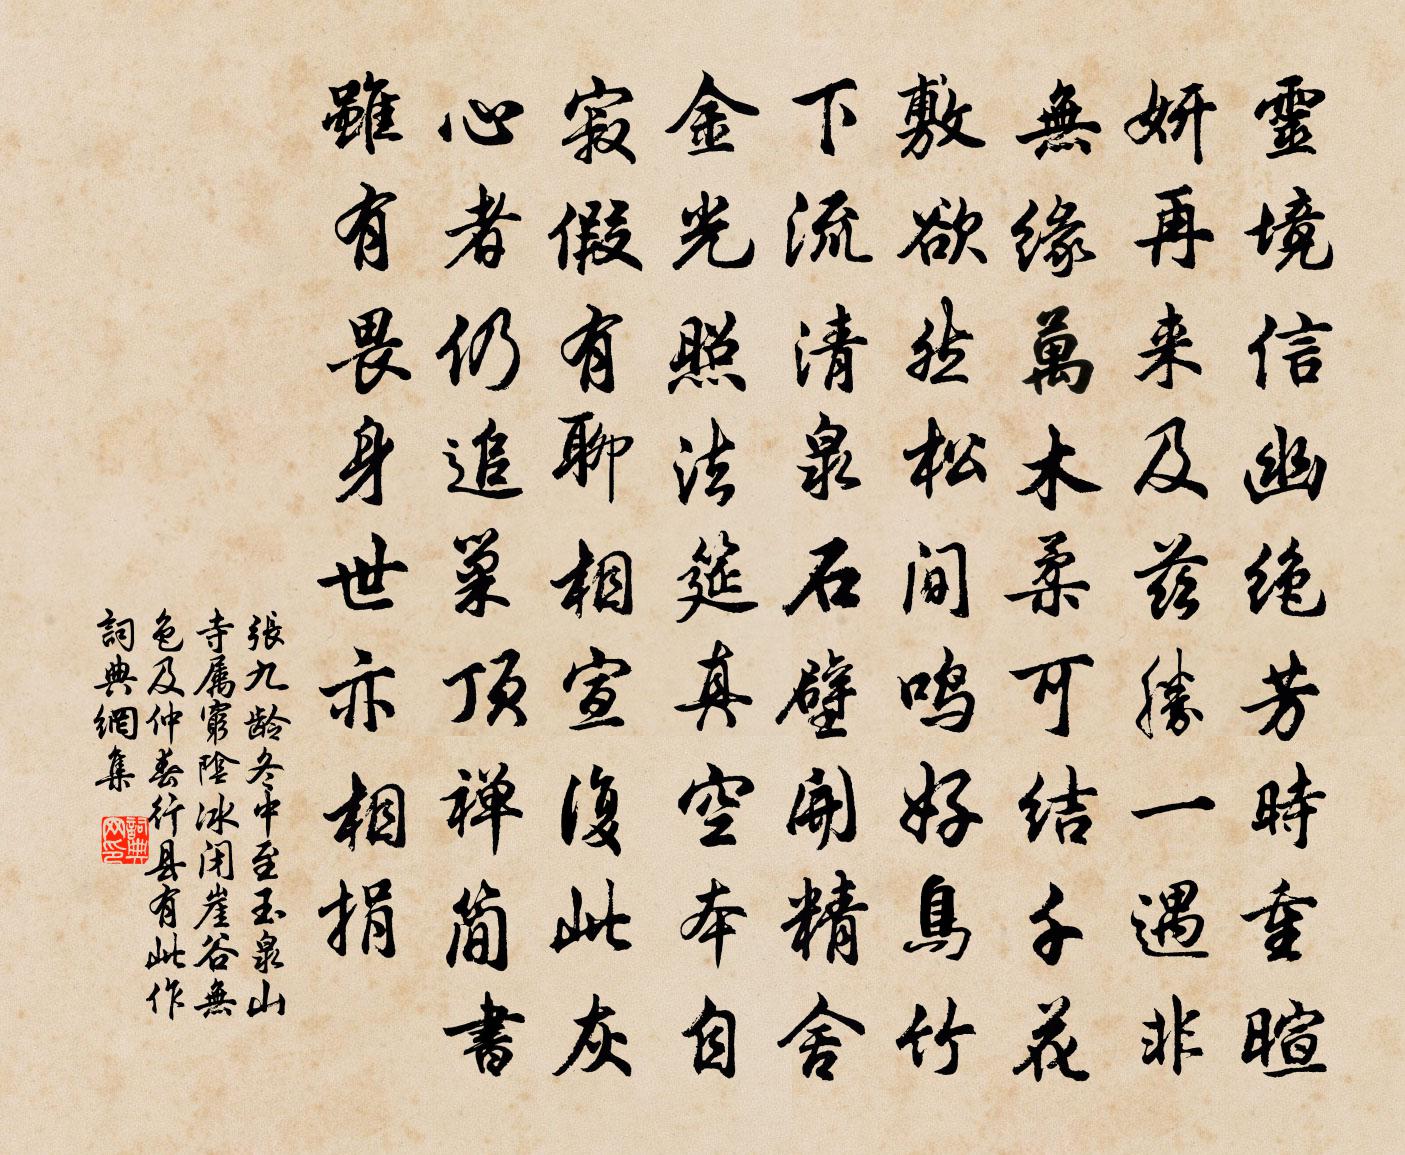 靈境信幽絶芳時重暄
妍再来及茲勝一遇非
無緣萬木柔可結千花
敷欲然松間鳴好鳥竹
下流清泉石壁開精舍
金光照法筵真空本自
寂假有聊相宣復此灰
心者仍追巢頂禅簡書
雖有畏身世亦相捐
張九齡冬中至玉泉山
寺属窮陰冰闭崖谷無
色及仲春行县有此作
詞典網集
詞典网印